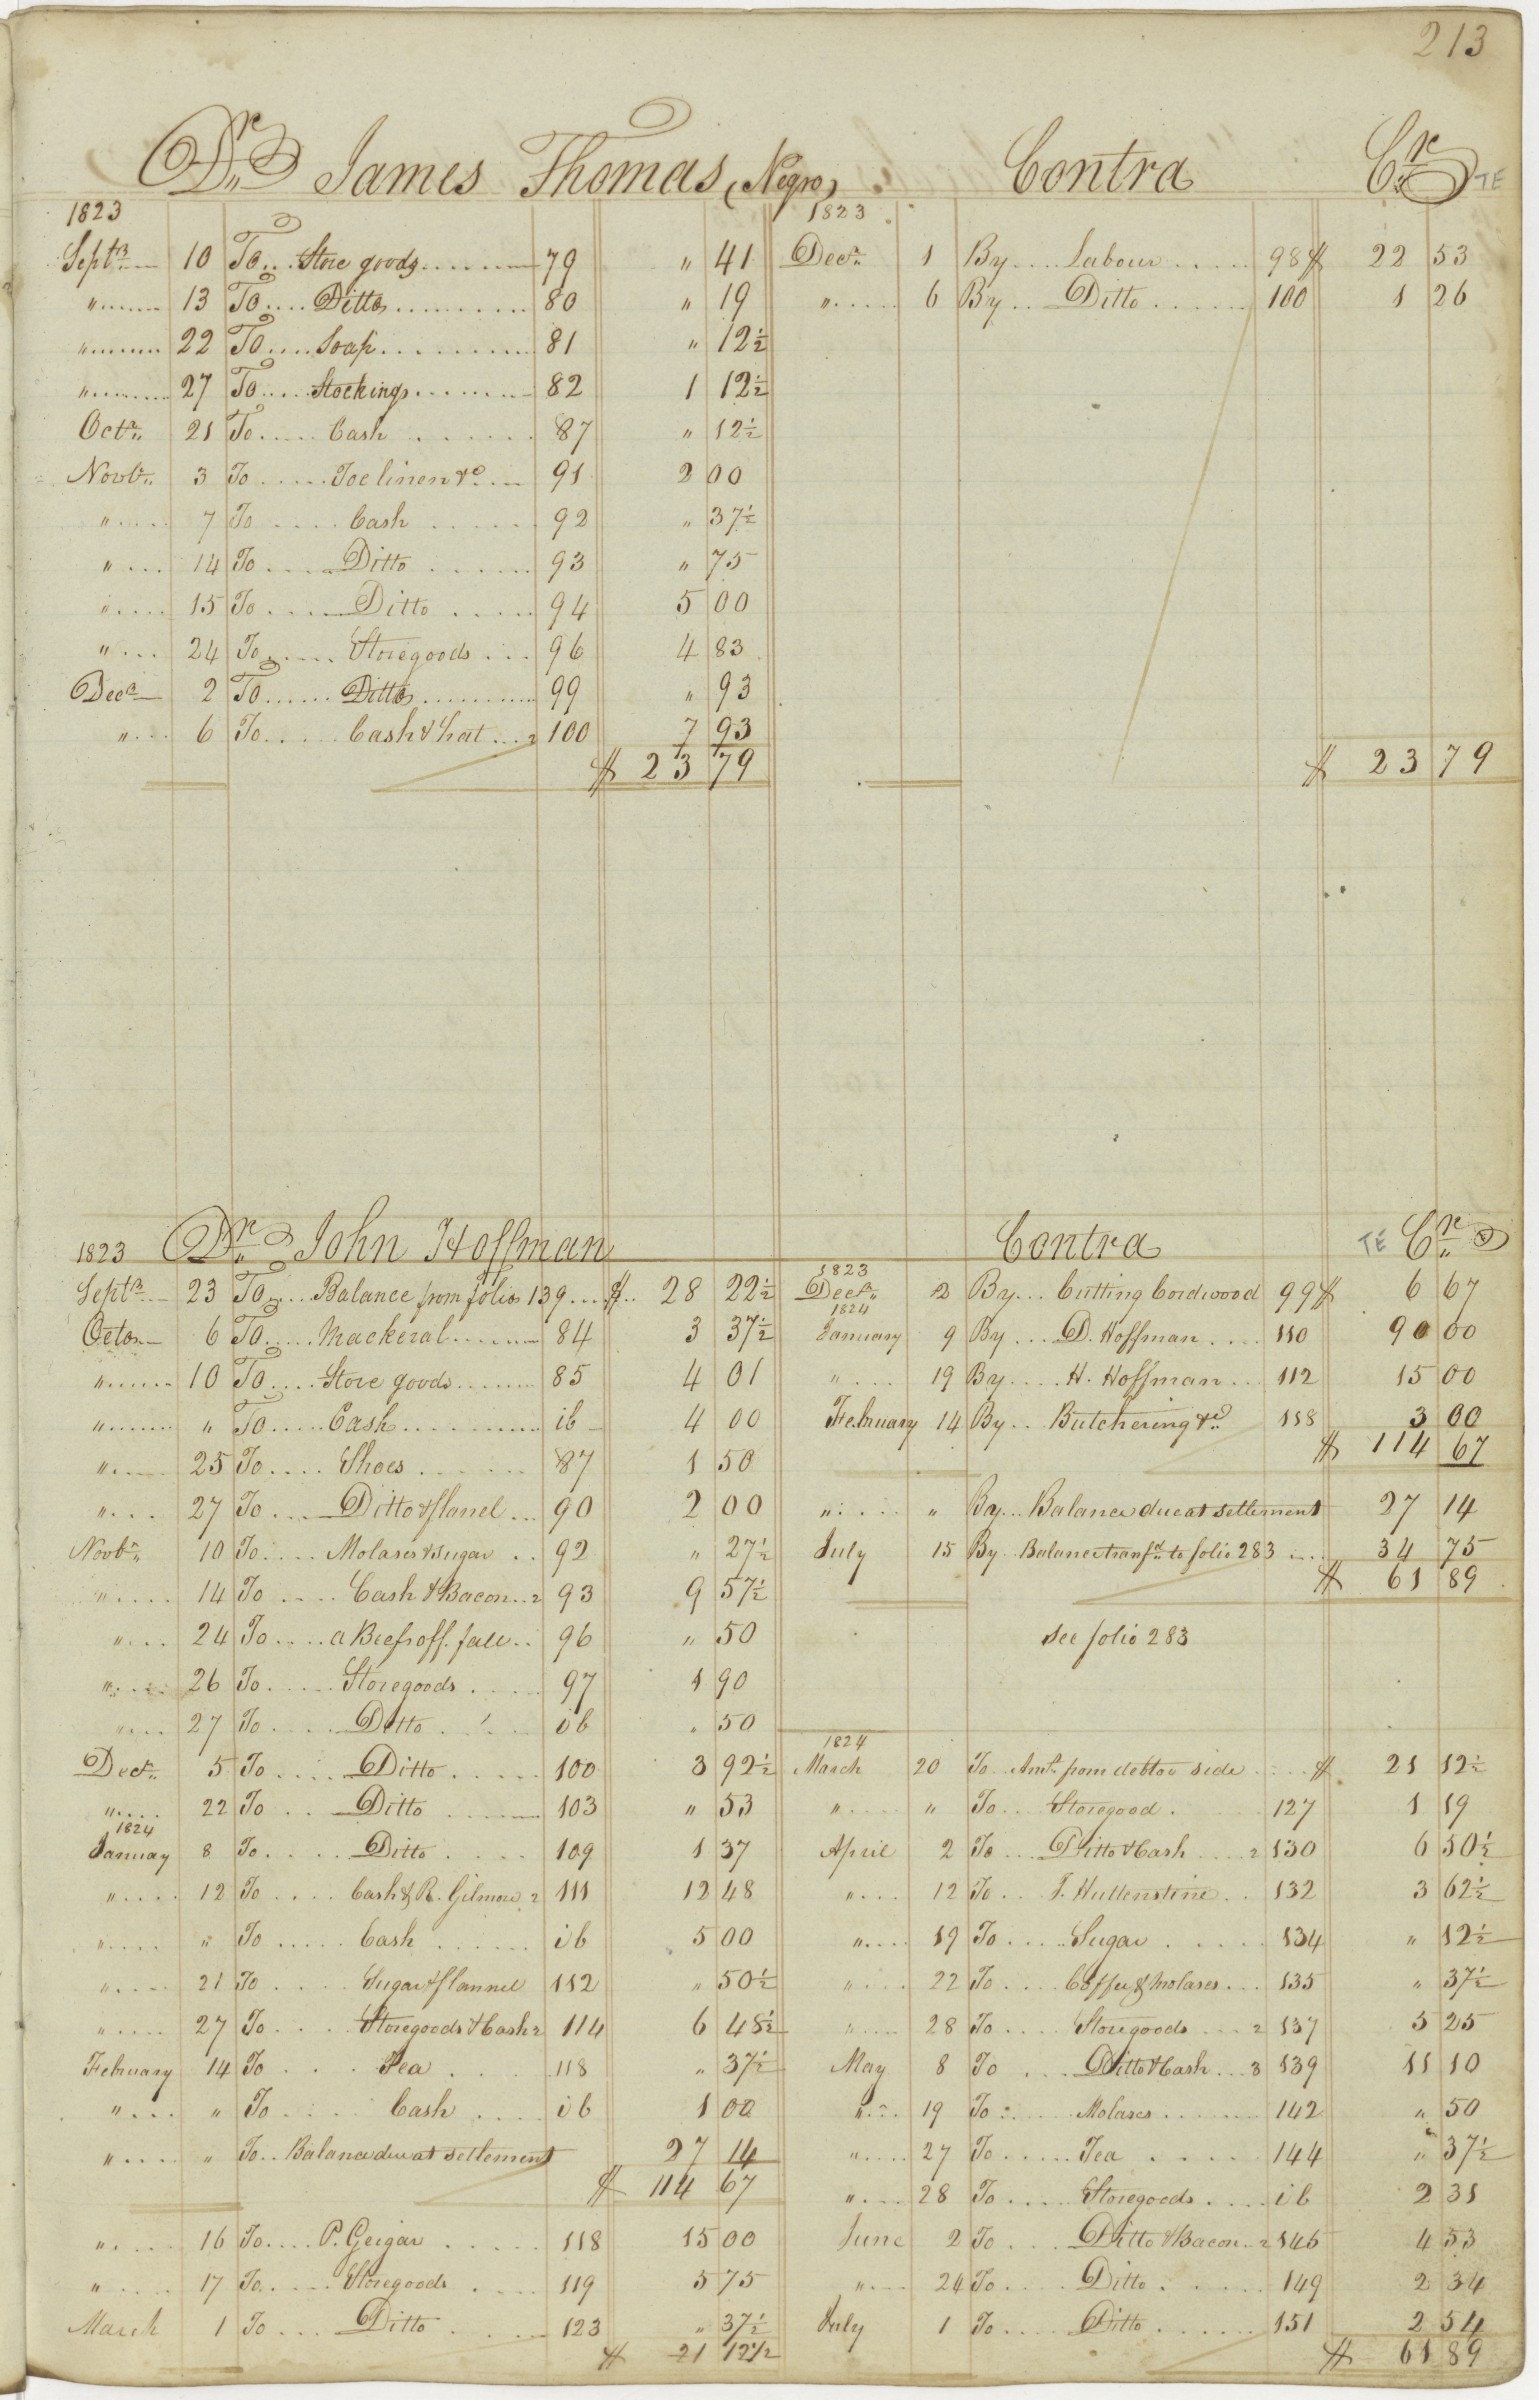 213
Dr James Thomas (Negro) Contra Cr TE
1823 1823
Septr 10 To Store goods 79 " 41 Decr 1 By Labour 98 $ 22 53
" 13 To Ditto 80 " 19 " 6 By Ditto 100 1 26
" 22 To Soap 81 " 12½
" 27 To Stockings 82 1 12½
Octr 21 To Cash 87 " 12½
Novbr 3 To Toe linen &c 91 2 00
" 7 To Cash 92 " 37½
" 14 To Ditto 93 " 75
" 15 To Ditto 94 5 00
" 24 To Storegoods 96 4 83
Decr 2 To Ditto 99 " 93
" 6 To Cash & hat 2 100 7 93
$ 23 79 $ 23 79
1823 Dr John Hoffman Contra TE Cr
1823
Septr 23 To Balance from folio 139 $ 28 22½ Decr 2 By Cutting Cordwood 99 $ 6 67
1824
Octo 6 To Mackeral 84 3 37½ January 9 By D. Hoffman 110 90 00
" 10 To Store goods 85 4 01 " 19 By H. Hoffman 112 15 00
" " To Cash ib 4 00 February 14 By Butchering &c 118 3 00
" 25 To Shoes 87 1 50 $ 114 67
" 27 To Ditto & flanel 90 2 00 " " By Balance due at settlement 27 14
Novbr 10 To Molases & sugar 92 " 27½ July 15 By Balance transfd to folio 283 34 75
" 14 To Cash & Bacon 2 93 9 57½ $ 61 89
" 24 To a Beefs off. fall 96 " 50 see folio 283
" 26 To Storegoods 97 1 90
" 27 To Ditto ib " 50
1824
Decr 5 To Ditto 100 3 92½ March 20 To Amt from debtor side $ 21 12½
" 22 To Ditto 103 " 53 " " To Storegood 127 1 19
1824
January 8 To Ditto 109 1 37 April 2 To Ditto & Cash 2 130 6 50½
" 12 To Cash & R. Gilmore 2 111 12 48 " 12 To J. Huttenstine 132 3 62½
" " To Cash ib 5 00 " 19 To Sugar 134 " 12½
" 21 To Sugar & flannel 112 " 50½ " 22 To Coffee & Molases 135 " 37½
" 27 To Storegoods & Cash 2 114 6 48½ " 28 To Storegoods 2 137 5 25
February 14 To Tea 118 " 37½ May 8 To Ditto & Cash 3 139 11 10
" " To Cash ib 1 00 " 19 To Molases 142 " 50
" " To Balance due at settlement 27 14 " 27 To Tea 144 " 37½
$ 114 67 " 28 To Storegoods ib 2 31
" 16 To P. Geigar 118 15 00 June 2 To Ditto & Bacon 2 146 4 53
" 17 To Storegoods 119 5 75 " 24 To Ditto 149 2 34
March 1 To Ditto 123 " 37½ July 1 To Ditto 151 2 54
$ 21 12½ $ 61 89